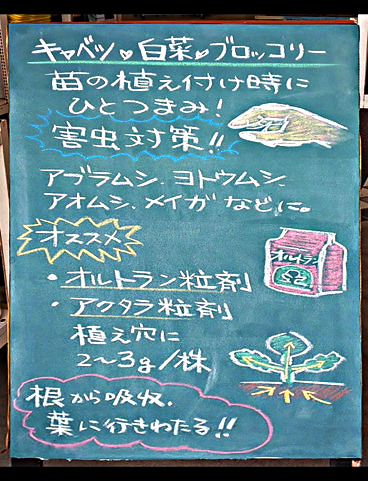 キャベツ♥白菜♥ブロッコリー
苗の植え付け時に
ひとつまみ!
害虫対策!!
アブラムシ、ヨトウムシ、
アオムシ、メイガなどに。
オススメ
・オルトラン粒剤
・アクタラ粒剤
植え穴に
2〜3g/株
オルトラン
根から吸収、
葉に行きわたる!!